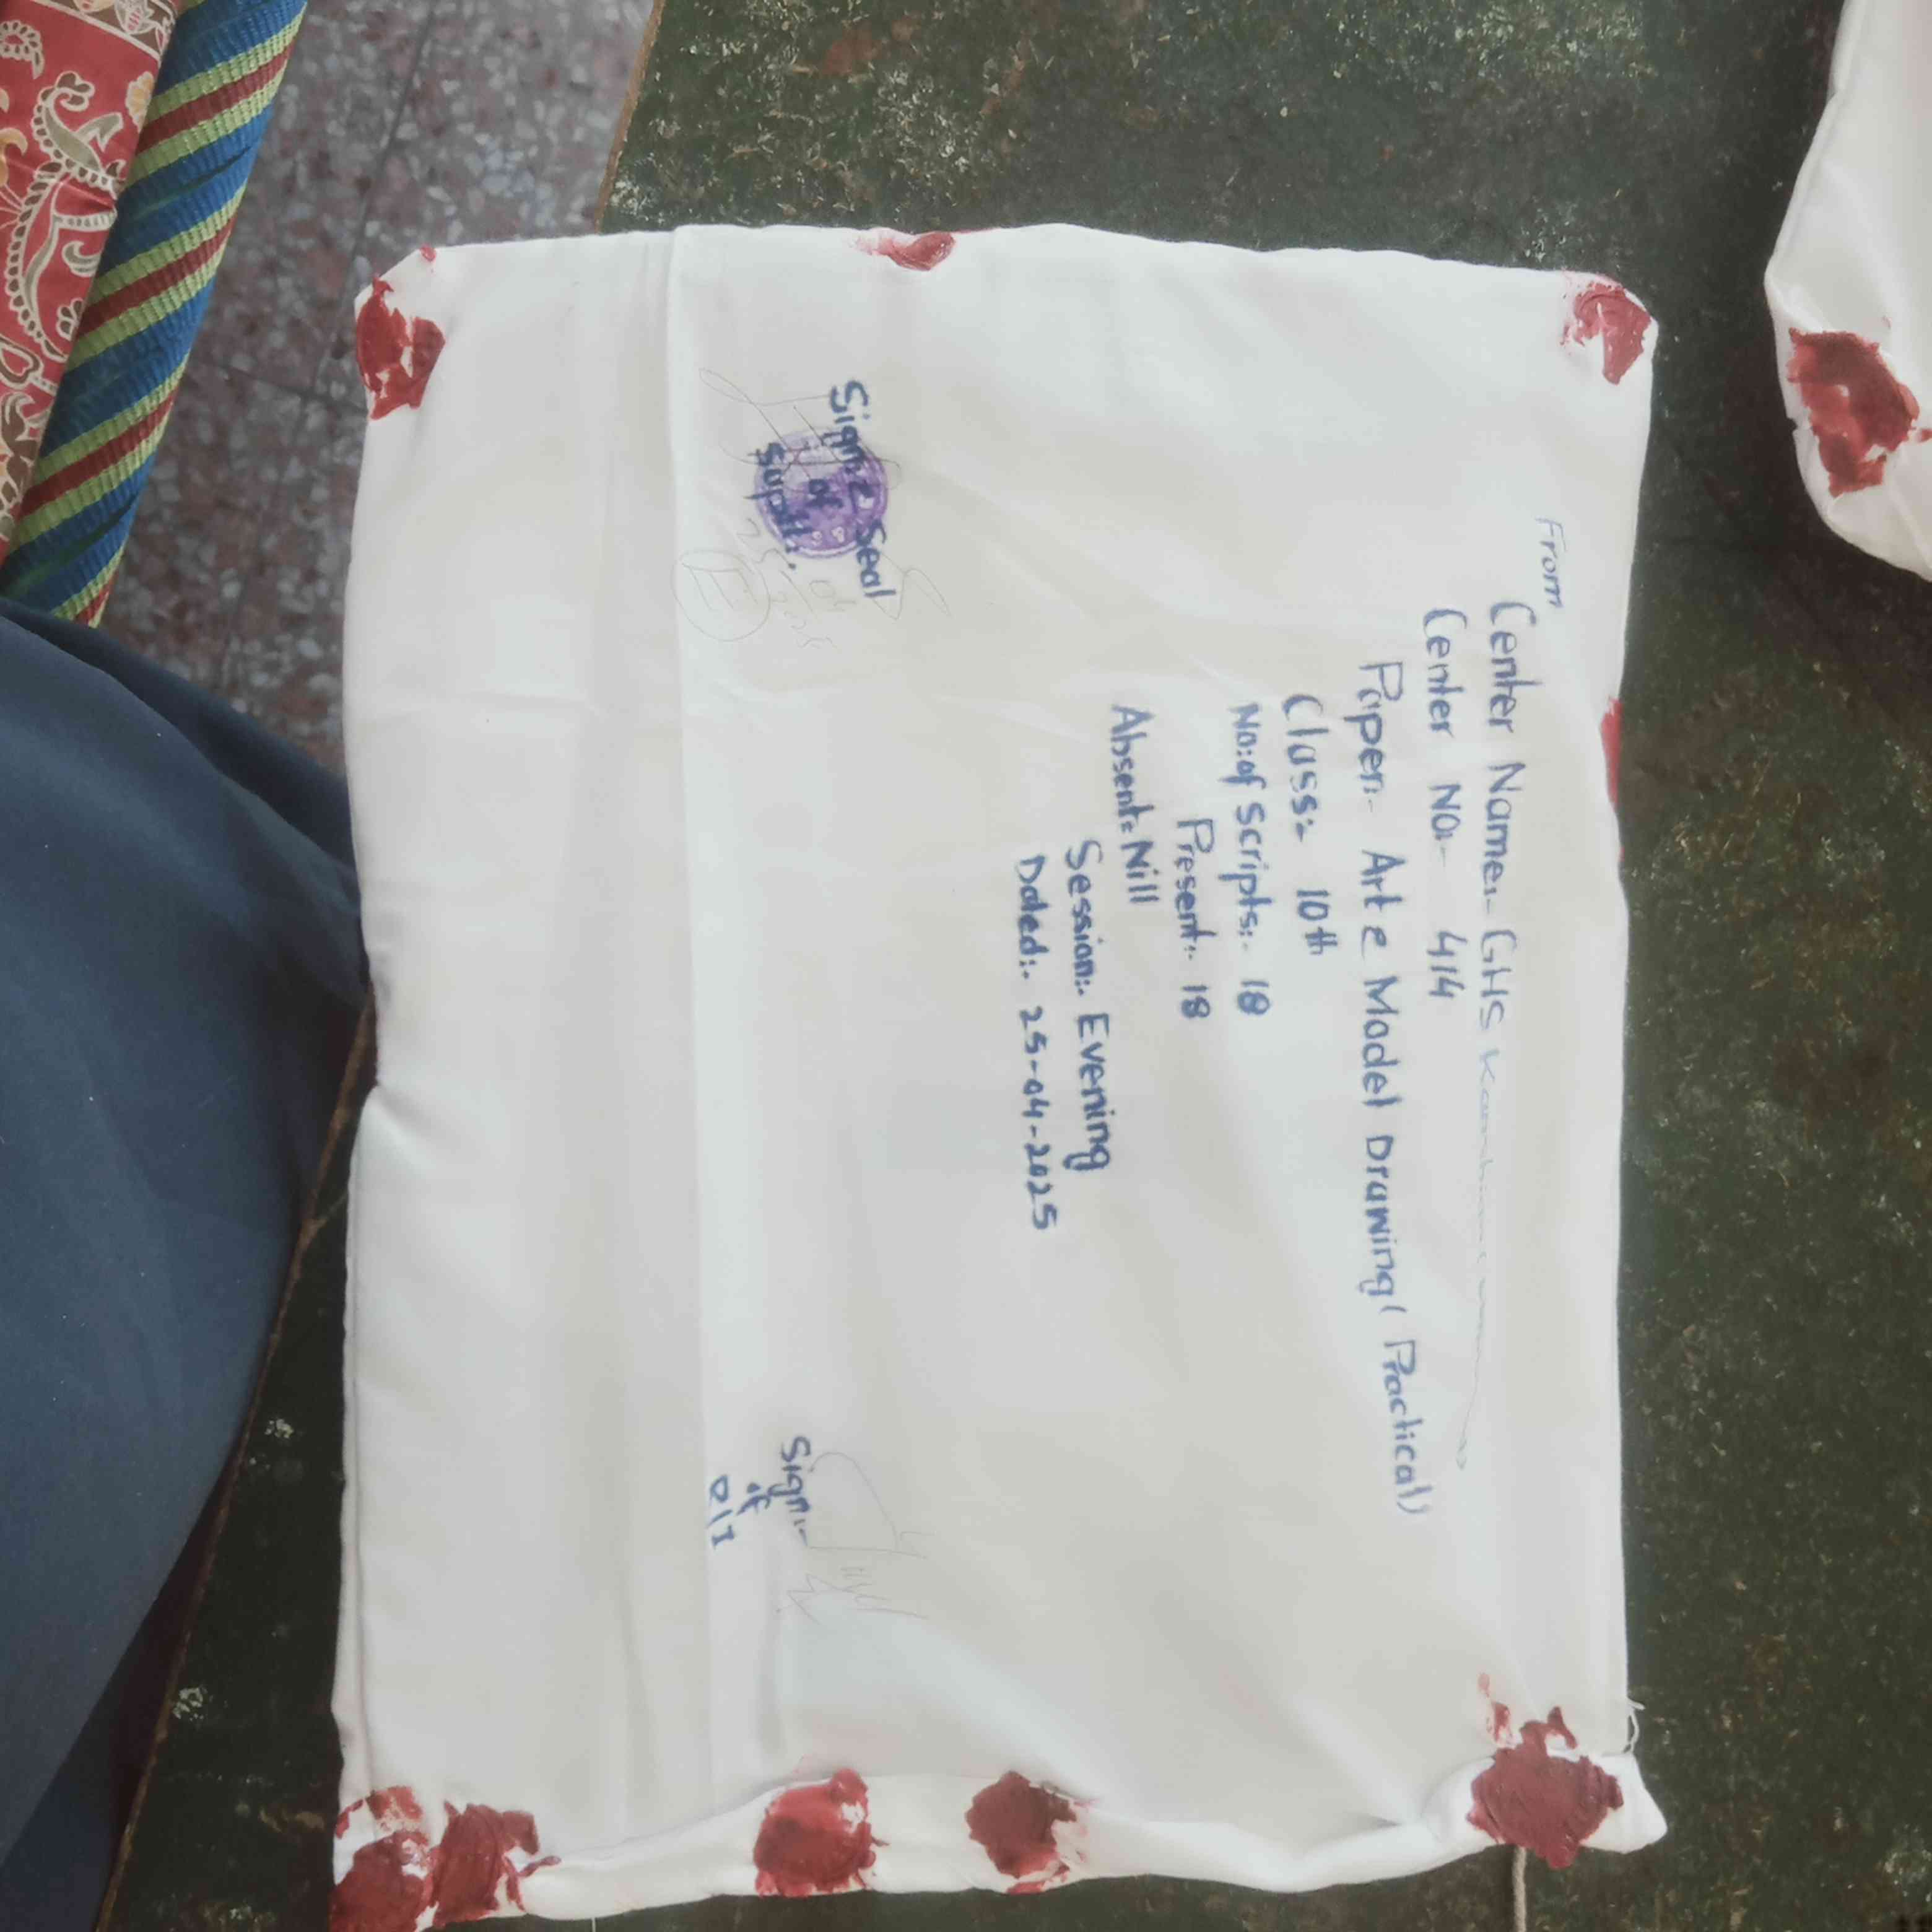 From
Center Name:- GHS
Center No:- 414
Paper:- Art & Model Drawing ( Practical)
Class:- 10th
No: of Scripts:- 18
Present:- 18
Absent:- Nill
Session:- Evening
Dated:- 25-04-2025
Sign: & Seal
of
Suptt:.
Sign:-
of
D/I